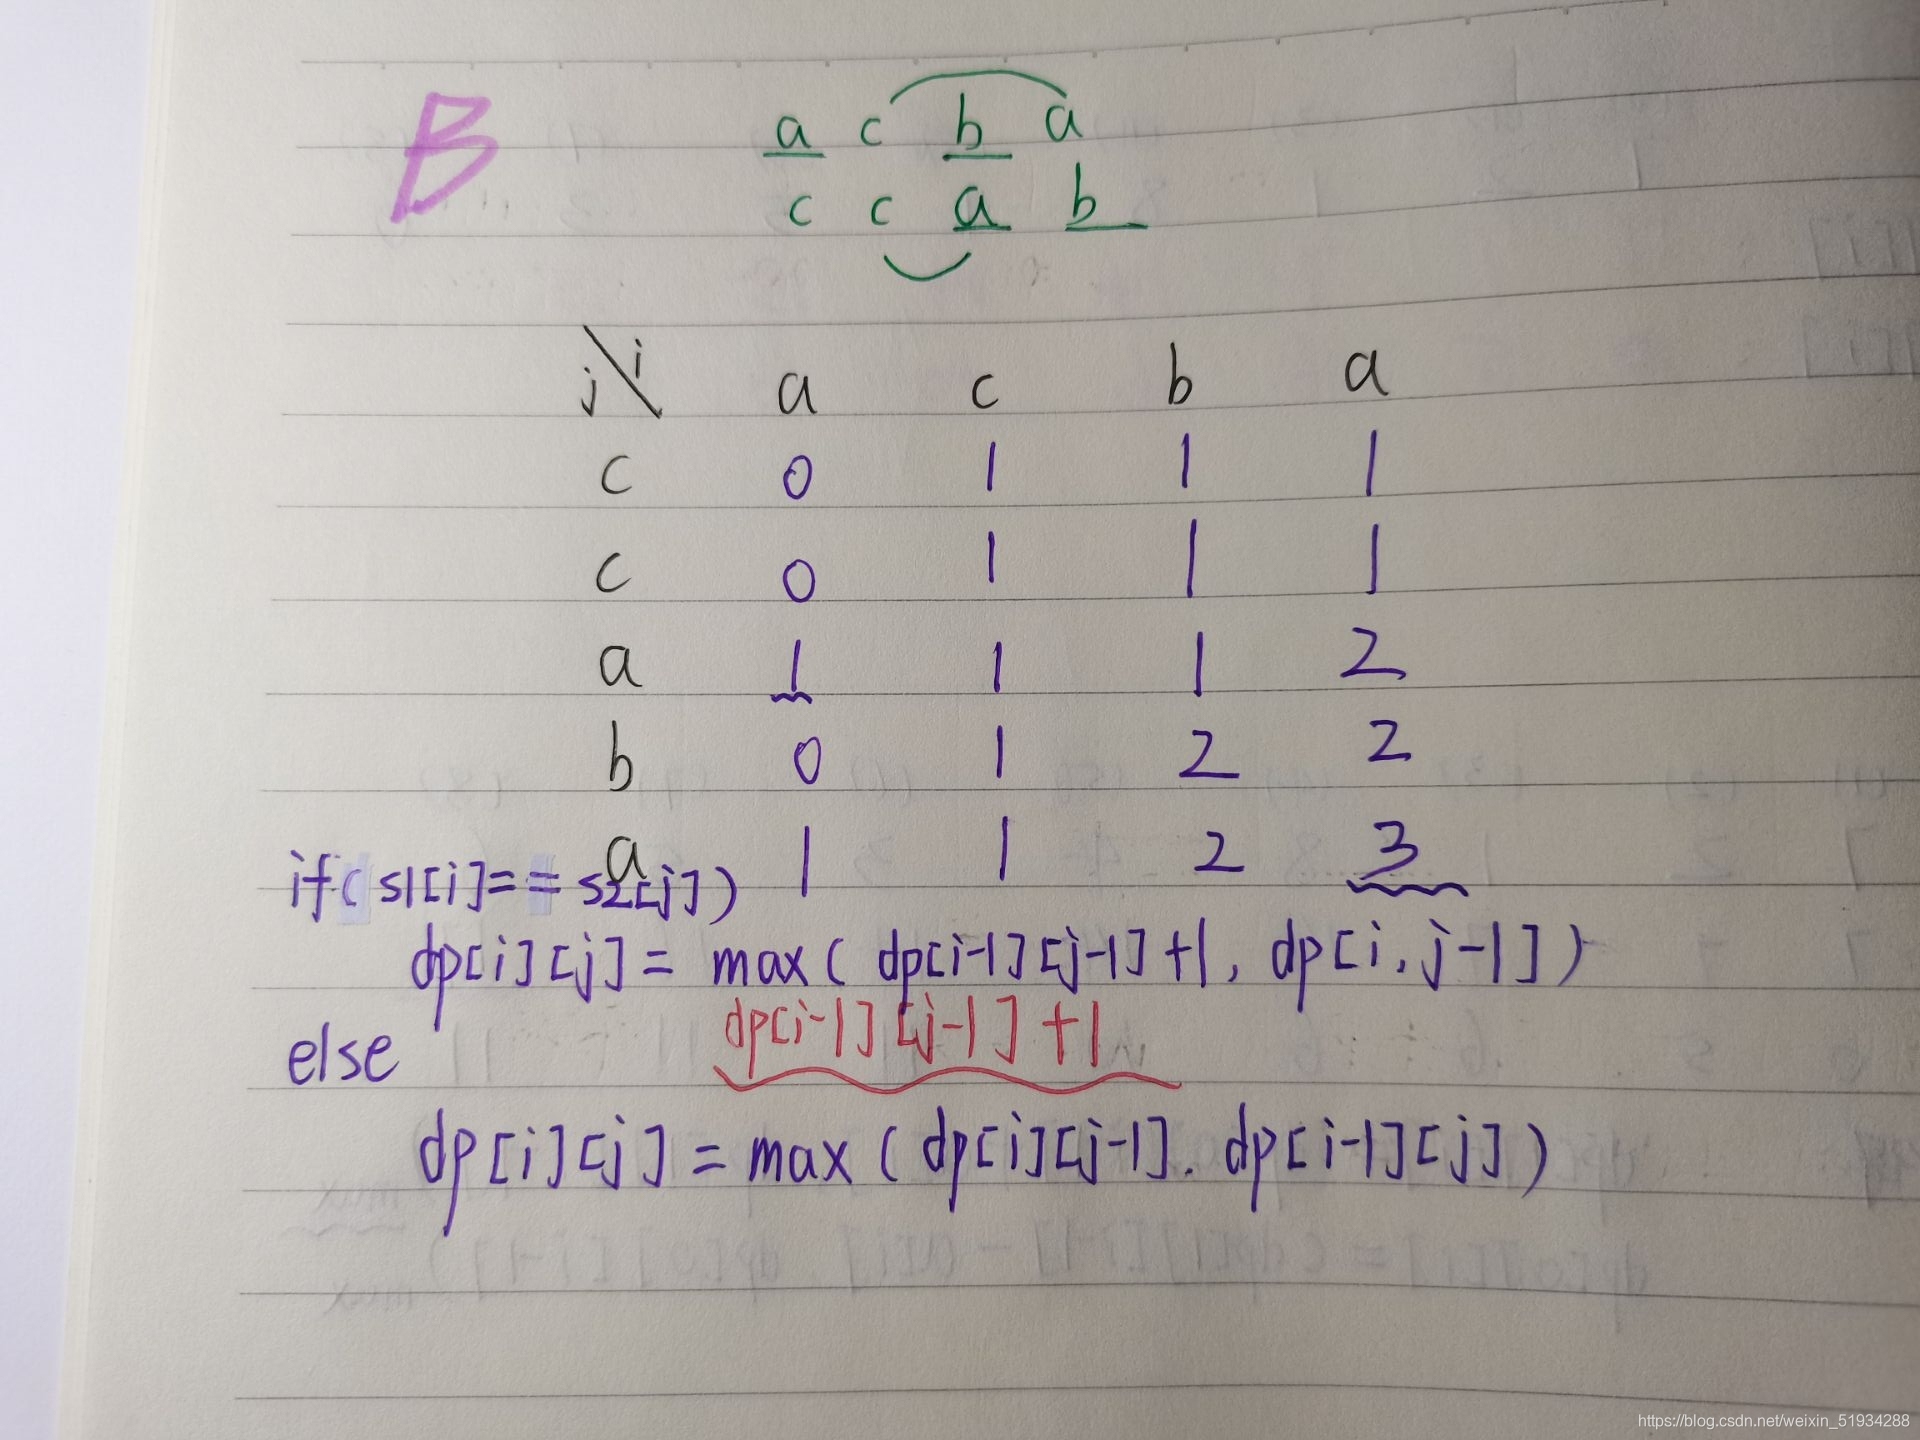 B
a c b a
c c a b
j \ i a c b a
c 0 1 1 1
c 0 1 1 1
a 1 1 1 2
b 0 1 2 2
a 1 1 2 3
if( s1[i]== s2[j])
dp[i][j] = max( dp[i-1][j-1]+1, dp[i, j-1])
dp[i-1][j-1]+1
else
dp[i][j] = max( dp[i][j-1]. dp[i-1][j])
https://blog.csdn.net/weixin_51934288